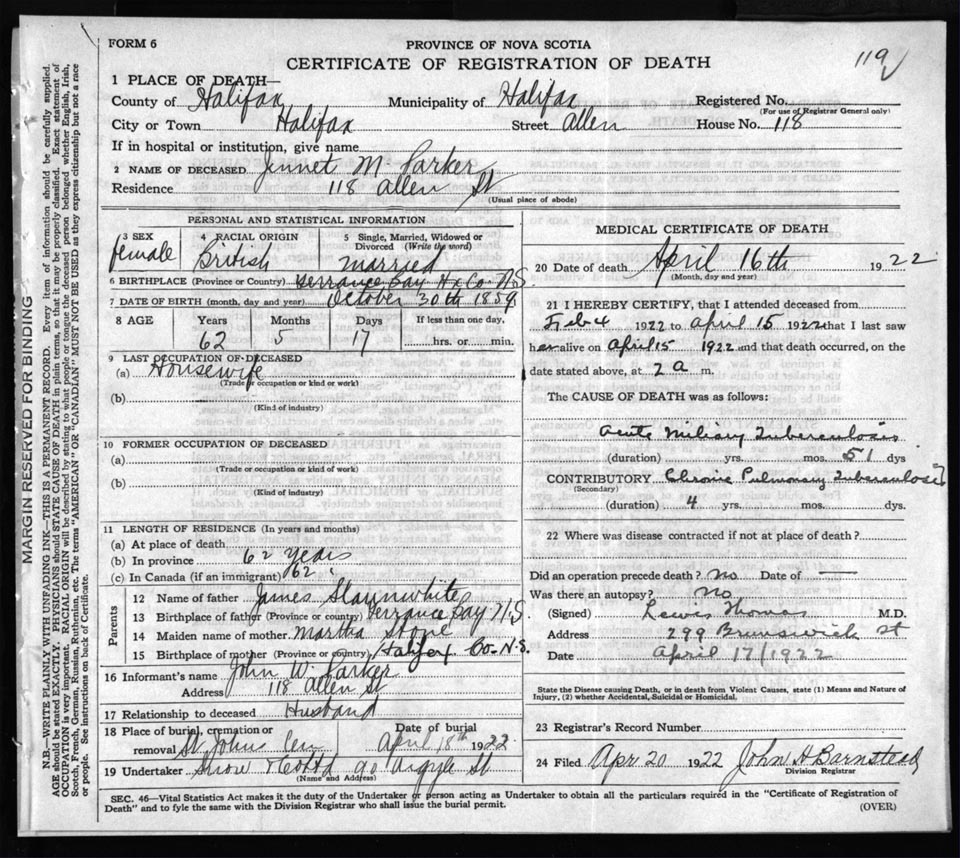 FORM 6
PROVINCE OF NOVA SCOTIA
119
CERTIFICATE OF REGISTRATION OF DEATH
1 PLACE OF DEATH—
County of Halifax Municipality of Halifax Registered No.
(For use of Registrar General only)
City or Town Halifax Street Allen House No. 118
If in hospital or institution, give name
2 NAME OF DECEASED Jennet M Parker
Residence 118 Allen St
(Usual place of abode)
PERSONAL AND STATISTICAL INFORMATION
3 SEX 4 RACIAL ORIGIN 5 Single, Married, Widowed or Divorced (Write the word)
female British married
6 BIRTHPLACE (Province or Country) Terrance Bay Hx Co N.S.
7 DATE OF BIRTH (month, day and year) October 30th 1859
8 AGE Years Months Days If less than one day,
62 5 17 hrs. or min.
9 LAST OCCUPATION OF DECEASED
(a) Housewife
(Trade or occupation or kind or work)
(b)
(Kind of industry)
10 FORMER OCCUPATION OF DECEASED
(a)
(Trade or occupation or kind or work)
(b)
(Kind of industry)
11 LENGTH OF RESIDENCE (In years and months)
(a) At place of death
(b) In province 62 years
(c) In Canada (if an immigrant) 62 "
Parents
12 Name of father James Slaunwhite
13 Birthplace of father (Province or country) Terrance Bay N.S
14 Maiden name of mother Martha
15 Birthplace of mother (Province or country) Halifax Co. N.S.
16 Informant's name John W. Parker
Address 118 Allen St
17 Relationship to deceased Husband
18 Place of burial, cremation or Date of burial
removal St Johns Cem April 18th 1922
19 Undertaker Snow & Co Ltd 90 Argyle St
(Name and Address)
MEDICAL CERTIFICATE OF DEATH
20 Date of death April 16th 1922
(Month, day and year)
21 I HEREBY CERTIFY, that I attended deceased from
Feb 4 1922 to April 15 1922 that I last saw
her alive on April 15 1922 and that death occurred, on the
date stated above, at 2 a m.
The CAUSE OF DEATH was as follows:
Acute Miliary Tuberculosis
(duration) yrs. mos. 51 dys.
CONTRIBUTORY Chronic Pulmonary Tuberculosis
(Secondary)
(duration) 4 yrs. mos. dys.
22 Where was disease contracted if not at place of death?
Did an operation precede death? No Date of —
Was there an autopsy? No
(Signed) Lewis Thomas M.D.
Address 299 Brunswick St
Date April 17/1922
State the Disease causing Death, or in death from Violent Causes, state (1) Means and Nature of
Injury, (2) whether Accidental, Suicidal or Homicidal.
23 Registrar's Record Number
24 Filed Apr 20 1922 John H Barnstead
Division Registrar
SEC. 46—Vital Statistics Act makes it the duty of the Undertaker or person acting as Undertaker to obtain all the particulars required in the "Certificate of Registration of
Death" and to fyle the same with the Division Registrar who shall issue the burial permit.
(OVER)
MARGIN RESERVED FOR BINDING
N.B.—WRITE PLAINLY WITH UNFADING INK—THIS IS A PERMANENT RECORD. Every item of information should be carefully supplied.
AGE should be stated EXACTLY. PHYSICIANS should STATE CAUSE OF DEATH in plain terms, so that it may be properly classified. Exact statement of
OCCUPATION is very important. RACIAL ORIGIN will be described by stating to what people or tongue the deceased person belonged whether English, Irish,
Scotch, French, German, Russian, Ruthenian, etc. The terms "AMERICAN" OR "CANADIAN" MUST NOT BE USED as they express citizenship but not a race
or people. See instructions on back of Certificate.